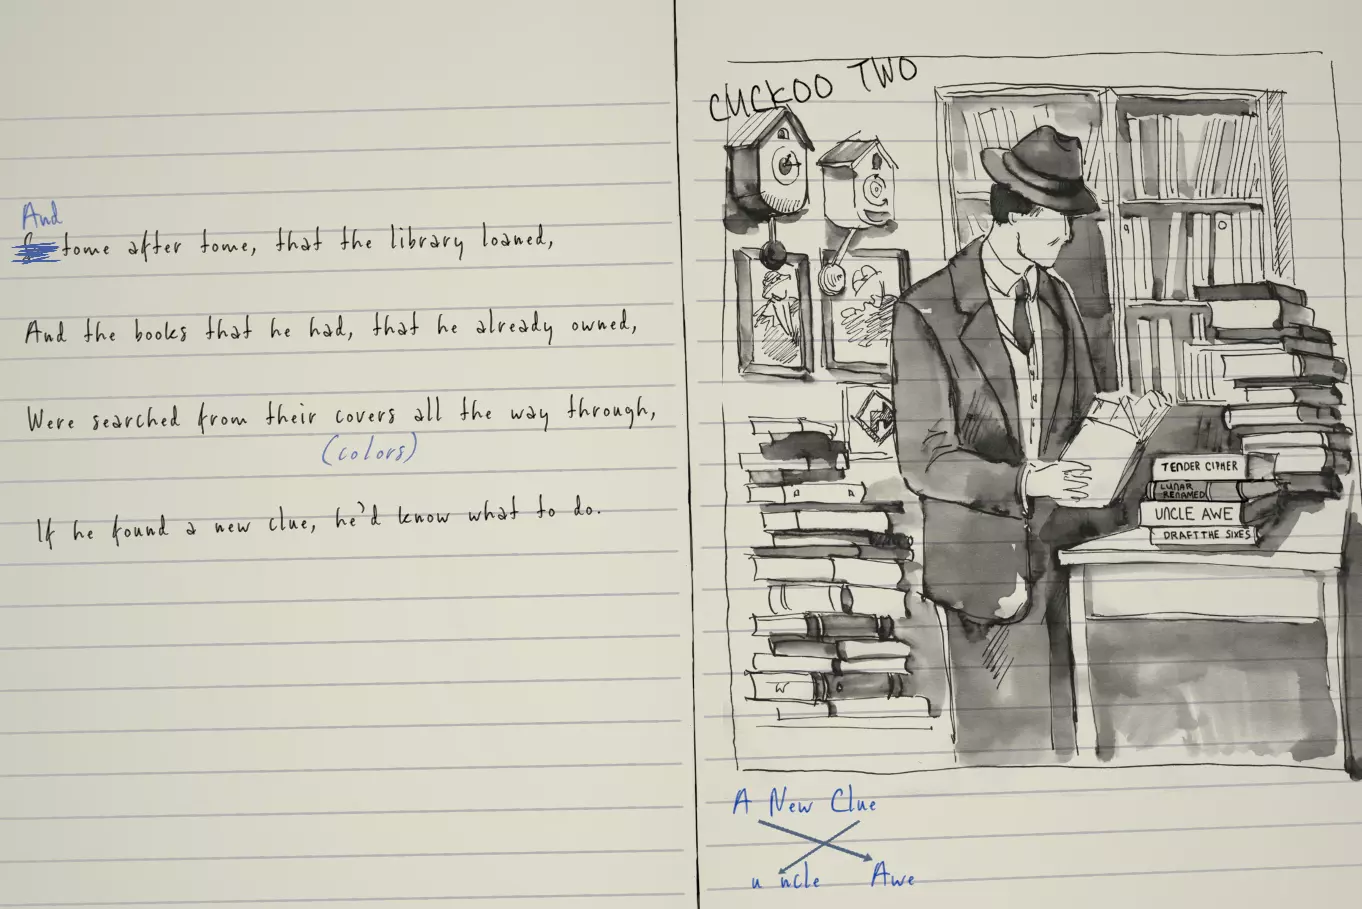 And
tome after tome, that the library loaned,
And the books that he had, that he already owned,
Were searched from their covers all the way through,
(colors)
If he found a new clue, he'd know what to do.
CUCKOO TWO
TENDER CIPHER
LUNAR
RENAMED
UNCLE AWE
DRAFT THE SIXES
W
A New Clue
u ncle Awe